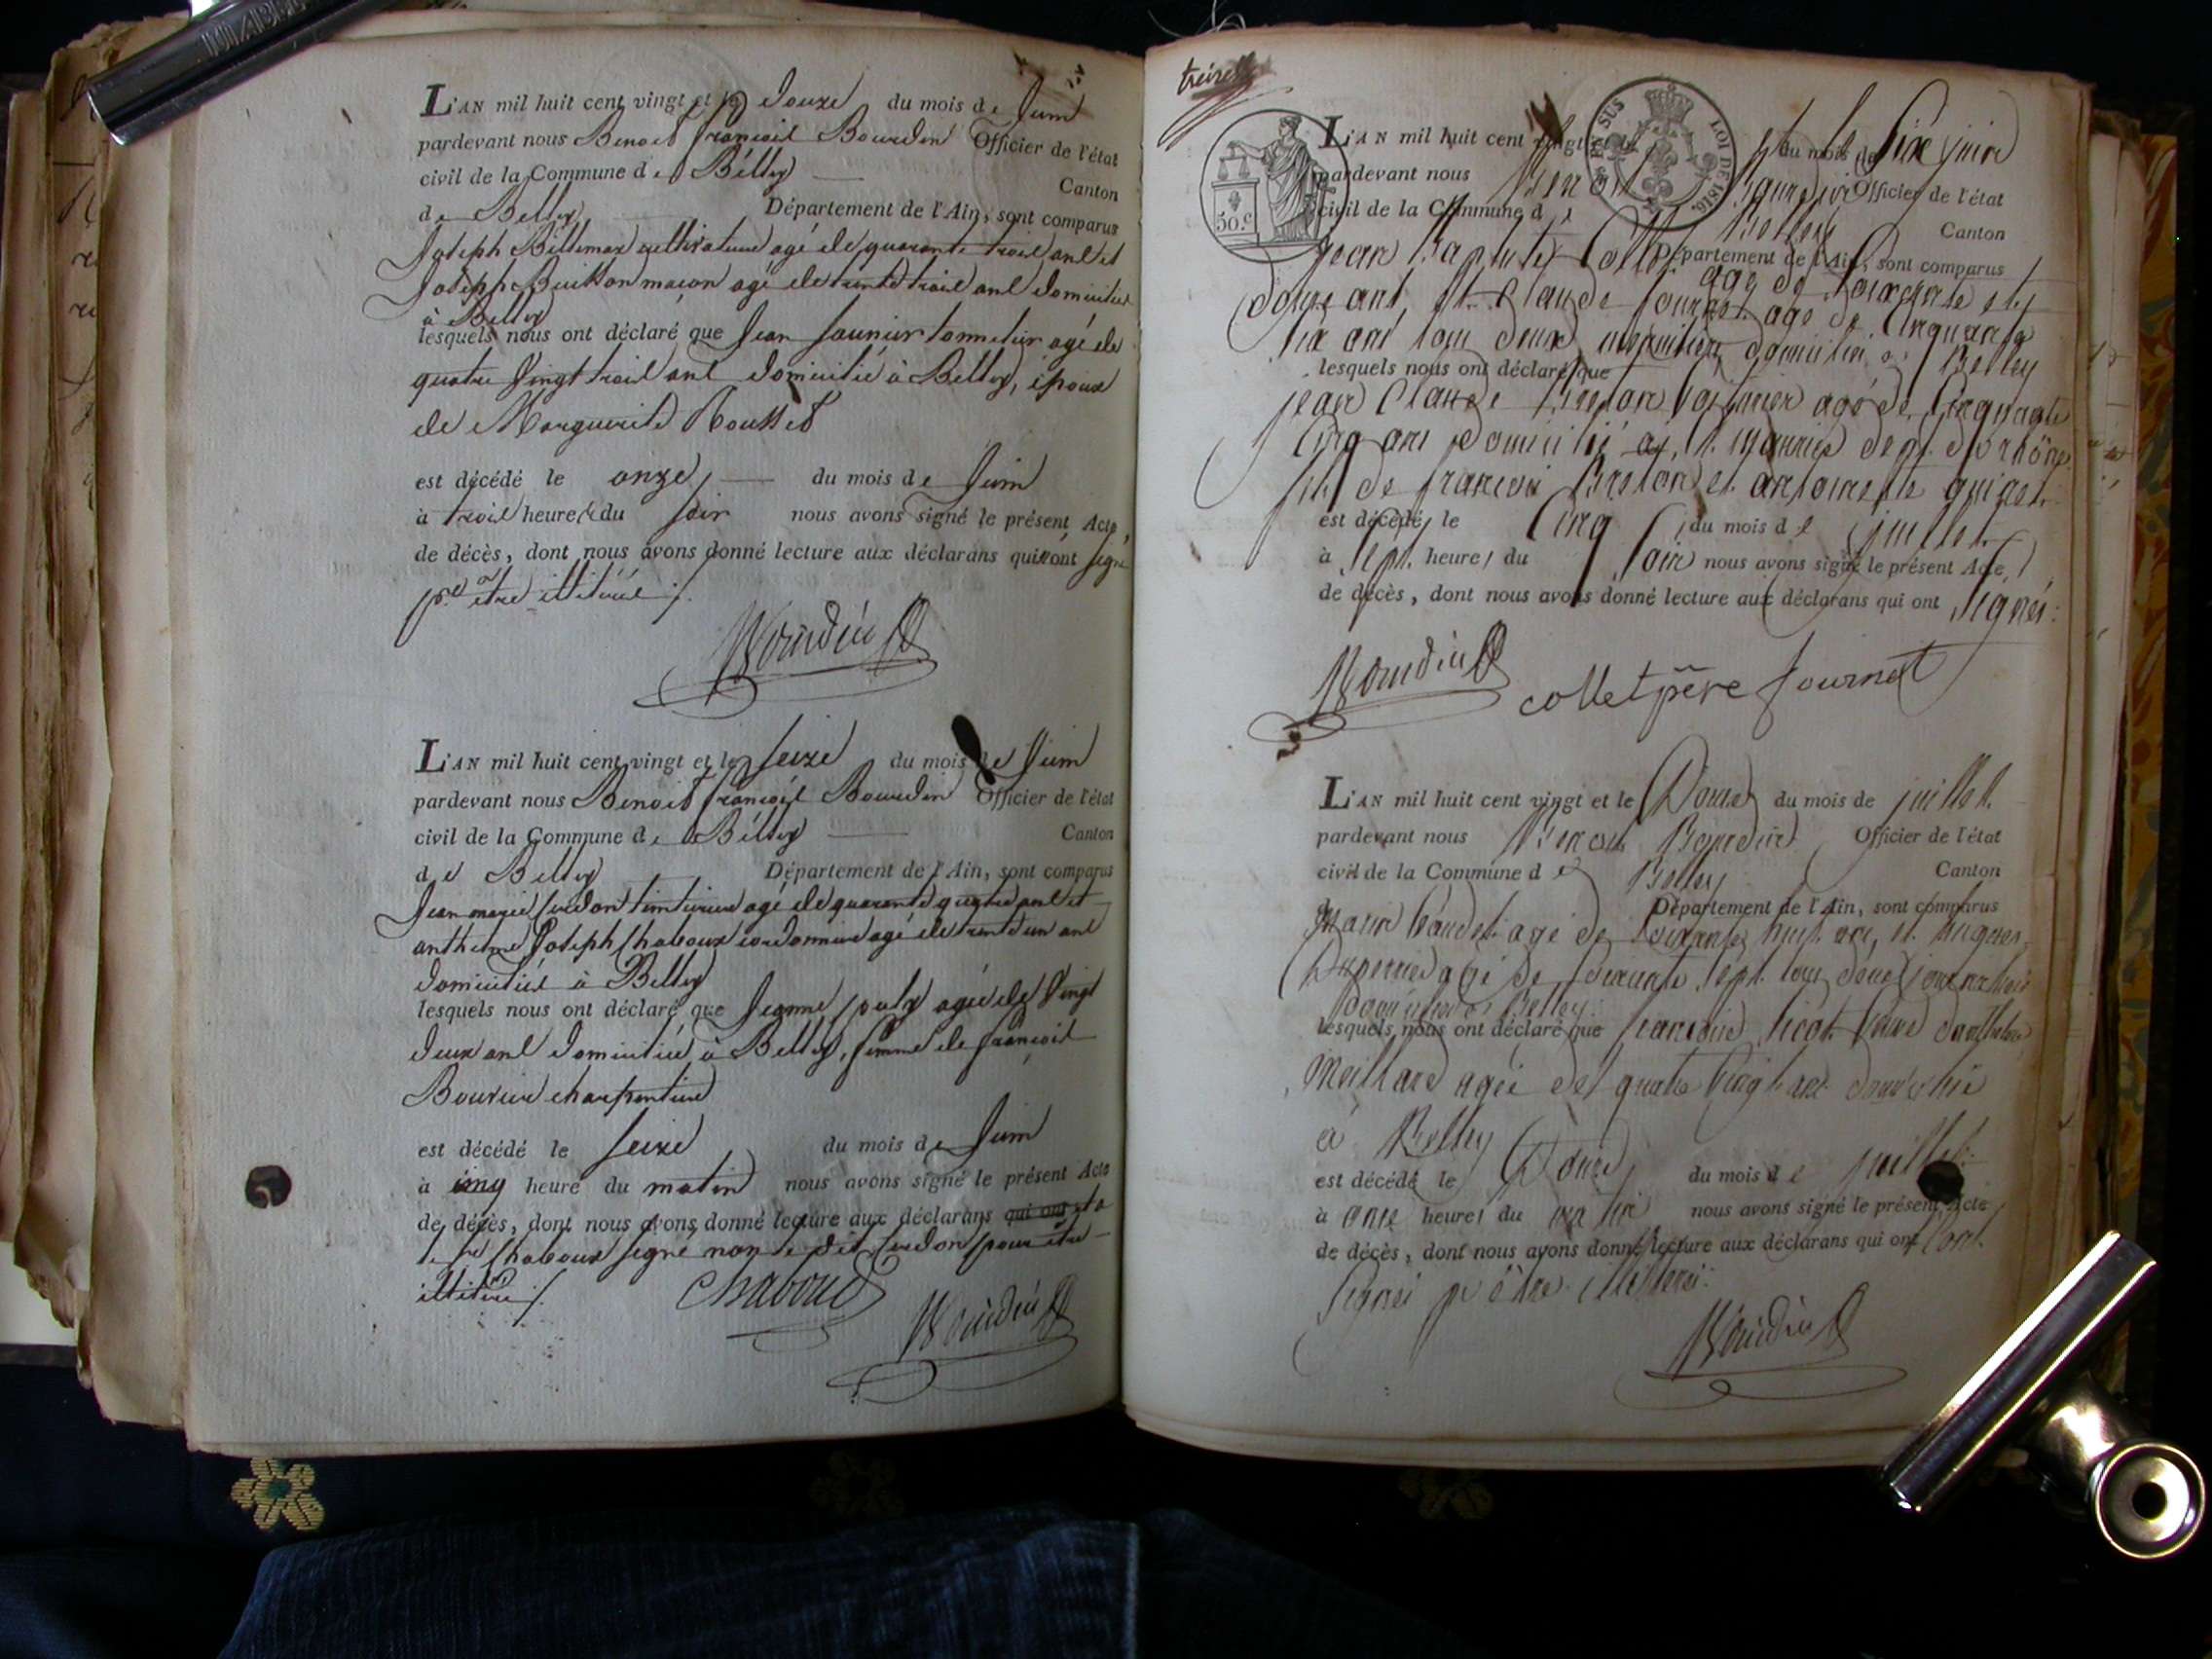 L'AN mil huit cent vingt et le douze du mois de Juin
pardevant nous Benoit françois Bourdin Officier de l'état
civil de la Commune de Belley Canton
de Belley Département de l'Ain, sont comparus
Joseph Billemaz cultivateur agé de quarante trois ans et
Joseph Buisson maçon agé de trente trois ans domiciliés
à Belley
lesquels nous ont déclaré que Jean Saunier tonnelier agé de
quatre vingt trois ans domicilié à Belley, époux
de Marguerite Rousset
est décédé le onze du mois de Juin
à trois heures du soir nous avons signé le présent Acte
de décès, dont nous avons donné lecture aux déclarans qui n'ont signé
pr. être illitérés ./.
Bourdin
L'AN mil huit cent vingt et le seize du mois de Juin
pardevant nous Benoit françois Bourdin Officier de l'état
civil de la Commune de Belley Canton
de Belley Département de l'Ain, sont comparus
Jean marie agé de quarante quatre ans et
anthelme Joseph Chaboux cordonnier agé de trente un ans
domiciliés à Belley
lesquels nous ont déclaré que Jeanne agée de vingt
deux ans domiciliée à Belley, femme de françois
Bouvier charpentier
est décédé le seize du mois de Juin
à cinq heure du matin nous avons signé le présent Acte
de décès, dont nous avons donné lecture aux déclarans qui ont et a
le Sr. Chaboux signé non le dit pour être
illitéré ./.
Chaboud Bourdin
treize
50 c.
SUS LOI DE 1816.
L'AN mil huit cent vingt et le Six juin du mois de
pardevant nous Benoit Bourdin Officier de l'état
civil de la Commune de Belley Canton
Département de l'Ain, sont comparus
jean Baptiste Collet agé de soixante et
douze ans, et Claude fournet agé de Cinquante
six ans tous deux domiciliés à Belley
lesquels nous ont déclaré que
jean Claude Breton agé de Cinquante
Cinq ans domicilié à dept. du rhône
fils de francois Breton et antoinette
est décédé le Cinq du mois de juillet
à Sept heures du Soir nous avons signé le présent Acte
de décès, dont nous avons donné lecture aux déclarans qui ont signés.
Bourdin collet père fournet
L'AN mil huit cent vingt et le Douze du mois de juillet
pardevant nous Benoit Bourdin Officier de l'état
civil de la Commune de Belley Canton
Département de l'Ain, sont comparus
agé de soixante huit ans, et hugues
agé de soixante sept tous deux journaliers
domiciliés à Belley
lesquels nous ont déclaré que francoise veuve
Meillard agée de quatre vingt ans domiciliée
à Belley
est décédé le Douze du mois de juillet
à onze heures du matin nous avons signé le présent Acte
de décès, dont nous avons donné lecture aux déclarans qui ont
signés pr être illitérés.
Bourdin